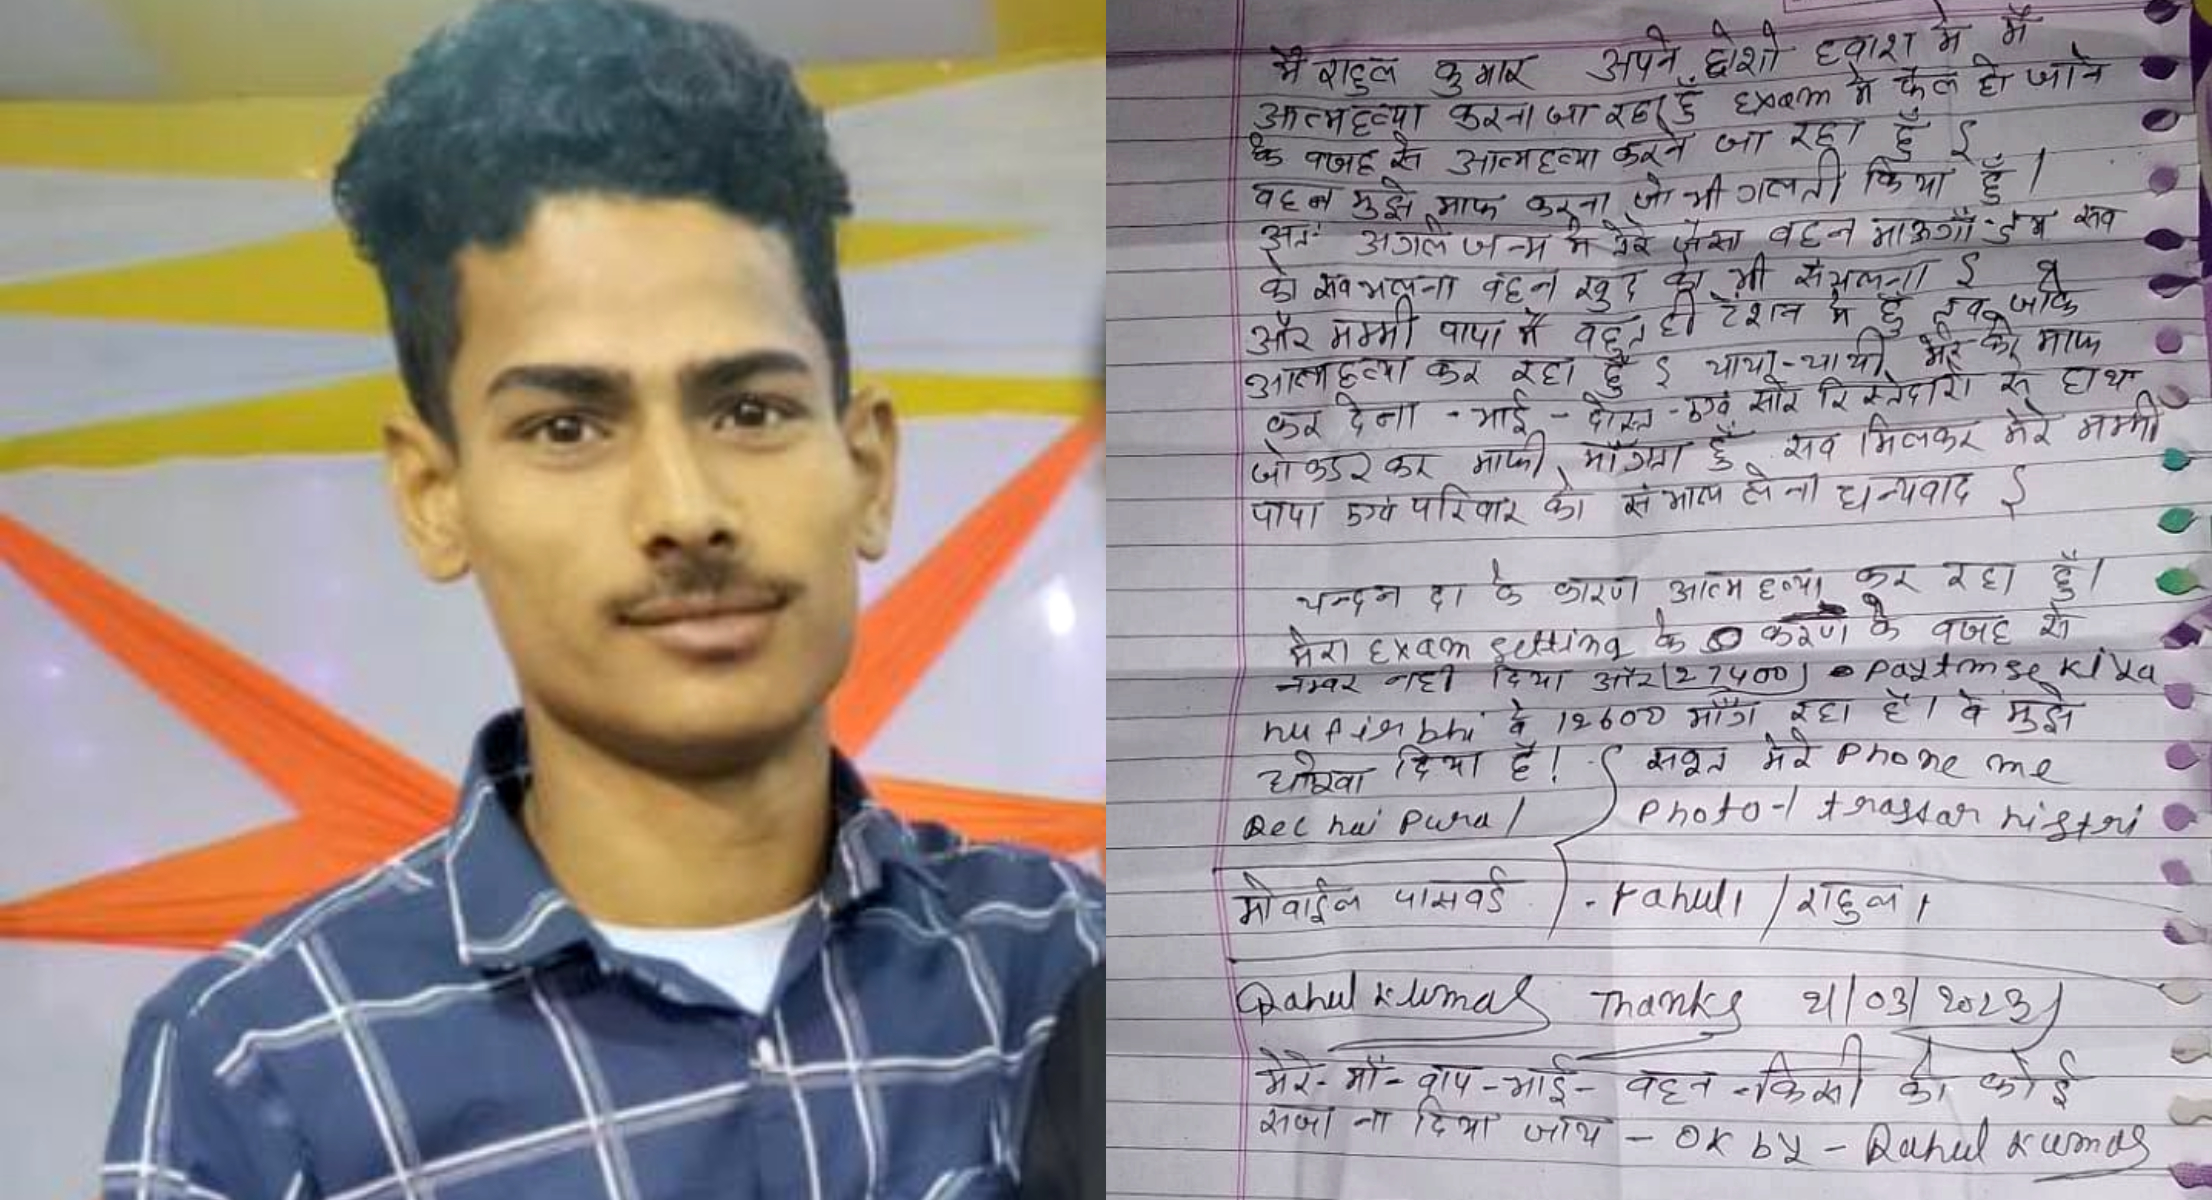 मै राहुल कुमार अपने होशो हवाश मे मैं
आत्महत्या करना जा रहा हूँ Exam मे फैल हो जाने
के वजह से आत्महत्या करने जा रहा हूँ
वहन मुझे माफ करना जो भी गलती किया हूँ।
अगले जन्म मे तेरे जैसा वहन माऊगाँ सव
को वहन खुद को भी
और मम्मी पापा मैं वहुत ही टेंशन मे हूँ
आत्महत्या कर रहा हूँ चाचा-चाची मेरे को माफ
कर देना - भाई - दोस्त - एवं सारे रिस्तेदारो से हाथ
कर माफी माँगता हूँ सव मिलकर मेरे मम्मी
पापा एवं परिवार को संभाल लेना धन्यवाद
चन्दन दा के कारण आत्महत्या कर रहा हूँ।
मेरा Exam setting के करण के वजह से
नम्वर नही दिया और 27400 paytm se kiya
hu 12600 माँग रहा है। वे मुझे
धोखा दिया है!
सवूत मेरे phone me
photo
मोवाईल पासवर्ड - rahul1 / राहुल1
Rahul Kumar Thanks 21/03/2023
मेरे - माँ - वाप - भाई - वहन - किसी को कोई
सजा ना दिया जाय - OK by - Rahul Kumar